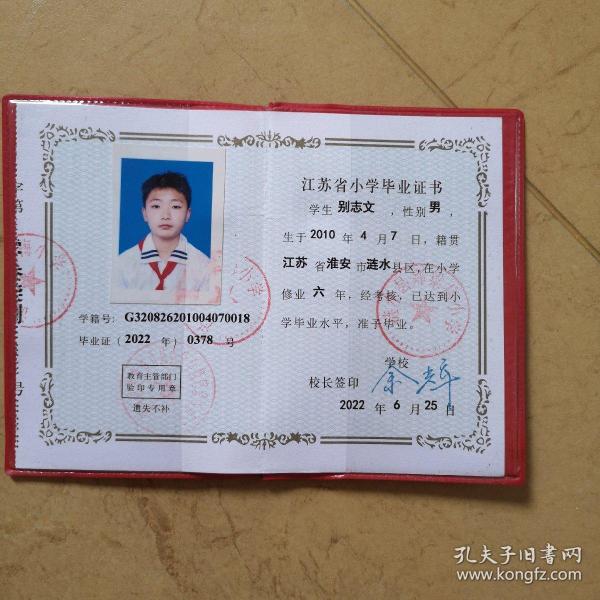 学籍号: G320826201004070018
毕业证 (2022 年) 0378 号
教育主管部门
验印专用章
遗失不补
江苏省小学毕业证书
学生 别志文 , 性别 男 ,
生于 2010 年 4 月 7 日, 籍贯
江苏 省 淮安 市 涟水 县区, 在小学
修业 六 年, 经考核, 已达到小
学毕业水平, 准予毕业。
学校
校长签印
2022 年 6 月 25 日
孔夫子旧书网
www.kongfz.com